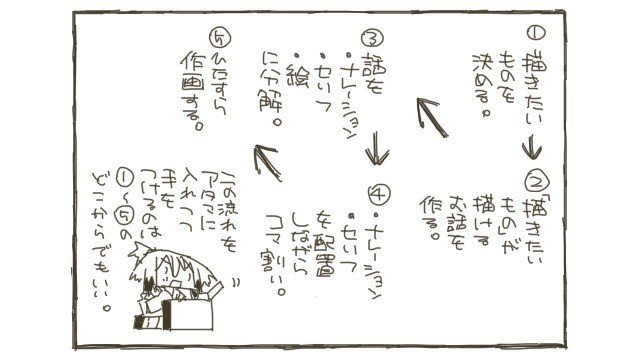 ①
描きたい
ものを
決める。
②
「描きたい
もの」が
描ける
お話を
作る。
③
話を
・ナレーション
・セリフ
・絵
に分解。
④
・ナレーション
・セリフ
を配置
しながら
コマ割い。
⑤
ひたすら
作画する。
この流れを
アタマに
入れつつ
手を
つけるのは
①〜⑤の
どこからでもいい。